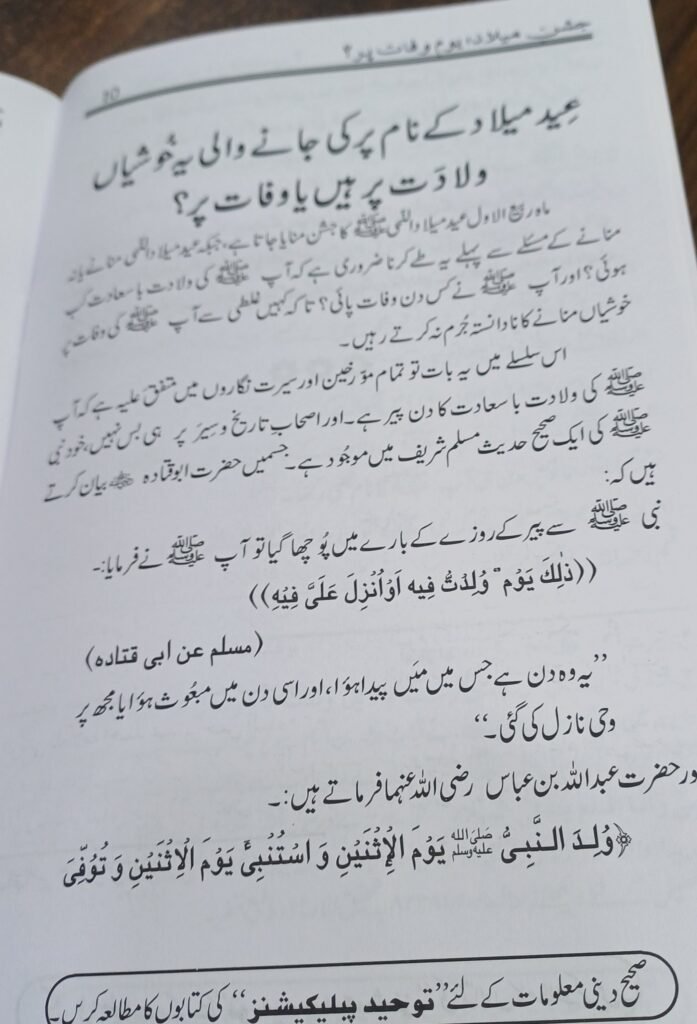 جشنِ میلاد، یومِ وفات پر؟
20
عِید میلاد کے نام پر کی جانے والی یہ خُوشیاں
ولادَت پر ہیں یا وفات پر؟
ماہ ربیع الاول عید میلاد النبی ﷺ کا جشن منایا جاتا ہے، جبکہ عید میلاد النبی منانے یا نہ
منانے کے مسئلے سے پہلے یہ طے کرنا ضروری ہے کہ آپ ﷺ کی ولادت با سعادت کب
ہوئی؟ اور آپ ﷺ نے کس دن وفات پائی؟ تا کہ کہیں غلطی سے آپ ﷺ کی وفات پر
خوشیاں منانے کا نا دانستہ جُرم نہ کرتے رہیں۔
اس سلسلے میں یہ بات تو تمام مؤرخین اور سیرت نگاروں میں متفق علیہ ہے کہ آپ
ﷺ کی ولادت با سعادت کا دن پیر ہے۔ اور اصحابِ تاریخ و سِیَر پر ہی بس نہیں، خود نبی
ﷺ کی ایک صحیح حدیث مسلم شریف میں موجُود ہے۔ جسمیں حضرت ابو قتادہ ؓ بیان کرتے
ہیں کہ:
نبی ﷺ سے پیر کے روزے کے بارے میں پُوچھا گیا تو آپ ﷺ نے فرمایا:۔
((ذٰلِكَ يَوْم ٌ وُلِدْتُّ فِيه اَوْاُنْزِلَ عَلَىَّ فِيْهِ))
(مسلم عن ابی قتادہ)
”یہ وہ دن ہے جس میں میَں پیدا ہؤا، اور اسی دن میں مبعُوث ہؤا یا مجھ پر
وحی نازل کی گئی۔“
ور حضرت عبداللہ بن عباس رضی اللہ عنہما فرماتے ہیں:۔
﴿وُلِدَ النَّبِىُّ ﷺ يَوْمَ الْاِثْنَيْنِ وَ اسْتُنْبِىَٔ يَوْمَ الْاِثْنَيْنِ وَ تُوُفِّىَ
صحیح دینی معلومات کے لئے ”توحید پبلیکیشنز“ کی کتابوں کا مطالعہ کریں۔